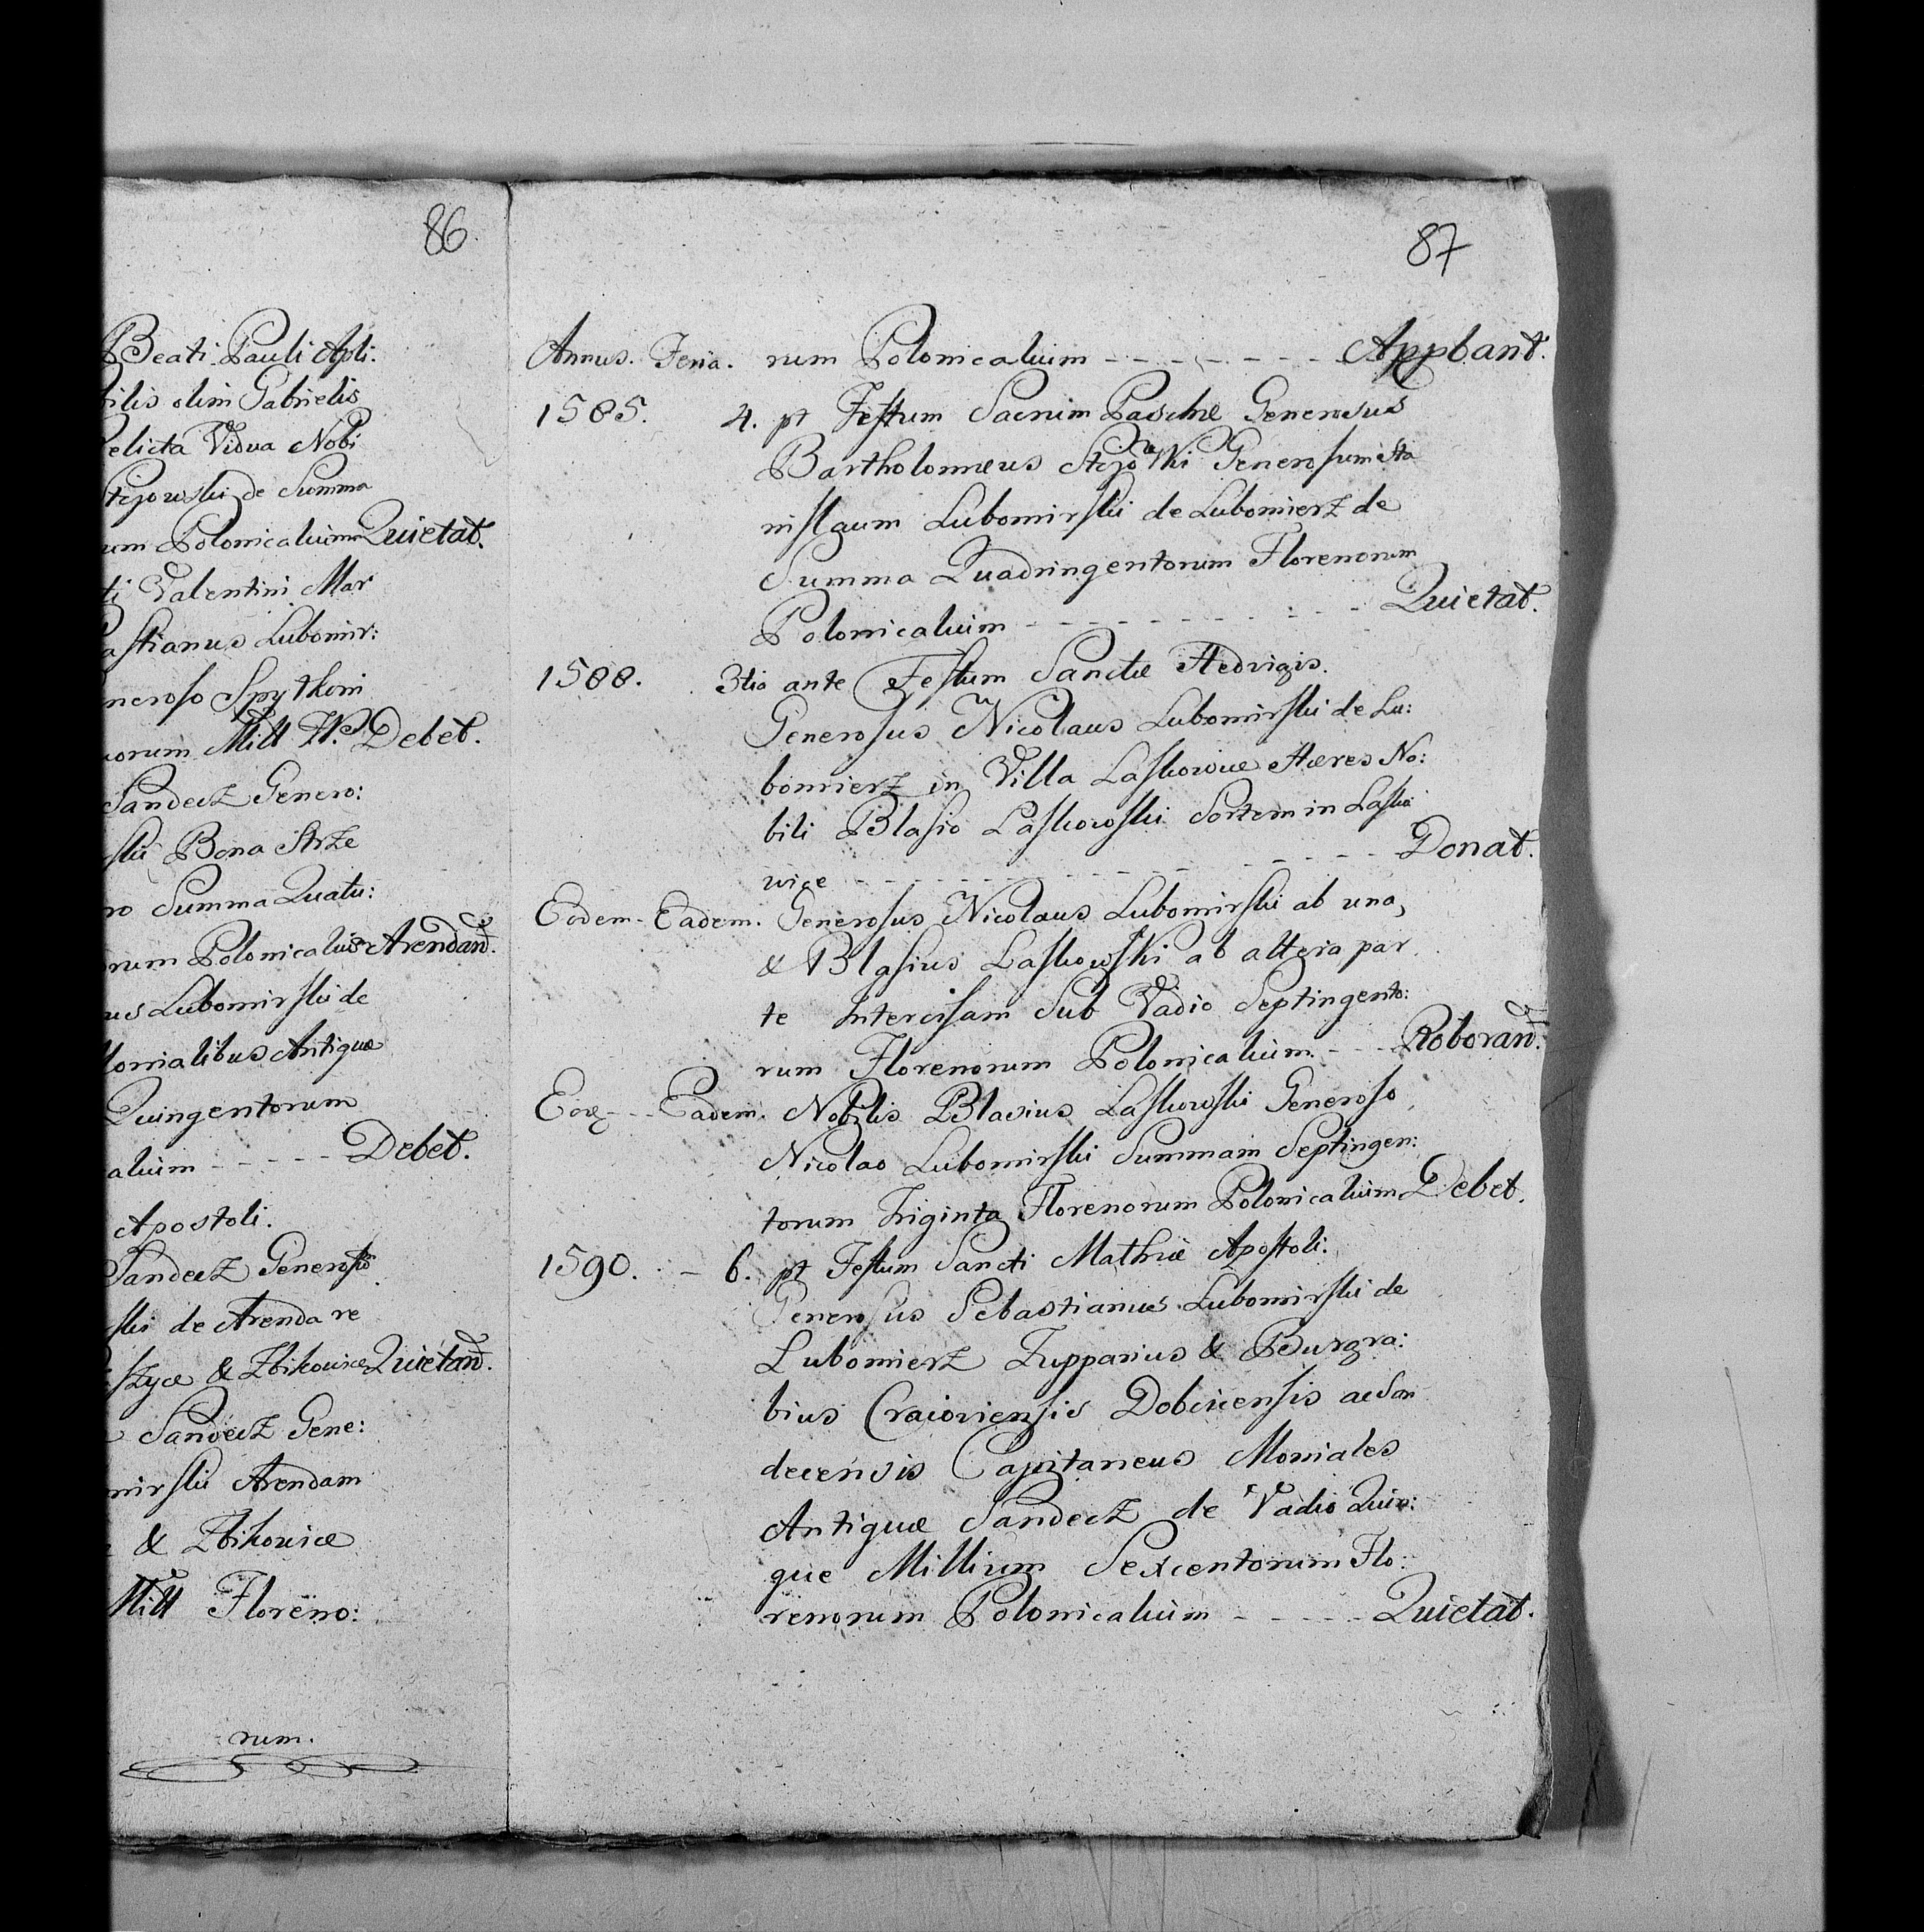 86.
Beati Pauli Apli:
bilis olim Gabrielis
elicta Vidua Nobi
Stejowski de Summa
um Polonicalium Quietat.
ti Valentini Mar
astianus Lubomir:
neroso Spythoni
norum Mill N.º Debet.
Sandecz Genero:
ski Bona Strze
ro Summa Quatu:
rum Polonicaliu Arendant.
us Lubomirski de
Monialibus Antiquæ
Quingentorum
alium - - - - - Debet.
Apostoli.
Sandecz Generoso
ski de Arenda re
szyce & Zbikowice Quietant.
Sandecz Gene:
mirski Arendam
& Zbikowice
Mill Floreno:
rum.
87
Annus. Feria. rum Polonicalium - - - - - - - Appbant.
1585. 4. pt Festum Sacrum Paschæ Generosus
Bartholomæus Stejowski Generosum Sta
nislaum Lubomirski de Lubomierz de
Summa Quadringentorum Florenorum
Polonicalium - - - - - - - - - - - Quietat.
1588. 3tio ante Festum Sanctæ Hedvigis.
Generosus Nicolaus Lubomirski de Lu:
bomierz in Villa Laskowice Hæres No:
bili Blasio Laskowski Sortem in Lasko
wice - - - - - - - - - - - - - Donat.
Eodem - Eadem. Generosus Nicolaus Lubomirski ab una,
& Blasius Laskowski ab altera par
te Intercisam Sub Vadio Septingento:
rum Florenorum Polonicalium. - - - Roborant.
Eod - - - Eadem. Nobilis Blasius Laskowski Generoso
Nicolao Lubomirski Summam Septingen:
torum Triginta Florenorum Polonicalium Debet.
1590. - 6. pt Festum Sancti Mathiæ Apostoli.
Generosus Sebastianus Lubomirski de
Lubomierz Zupparius & Burgra:
bius Cracoviensis Dobcicensis ac San
decensis Capitaneus Moniales
Antiquæ Sandecz de Vadio Quin:
que Millium Sexcentorum Flo:
renorum Polonicalium - - - - - Quietat.